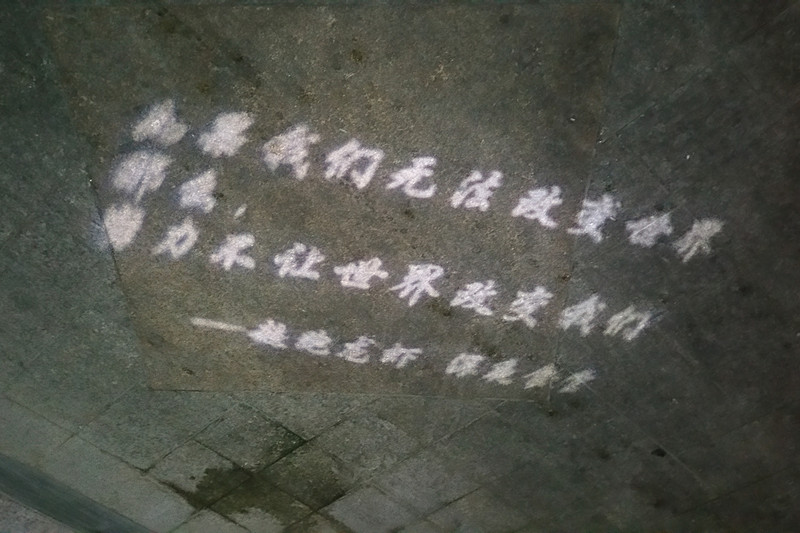 如果我们无法改变世界
那么,
努力不让世界改变我们